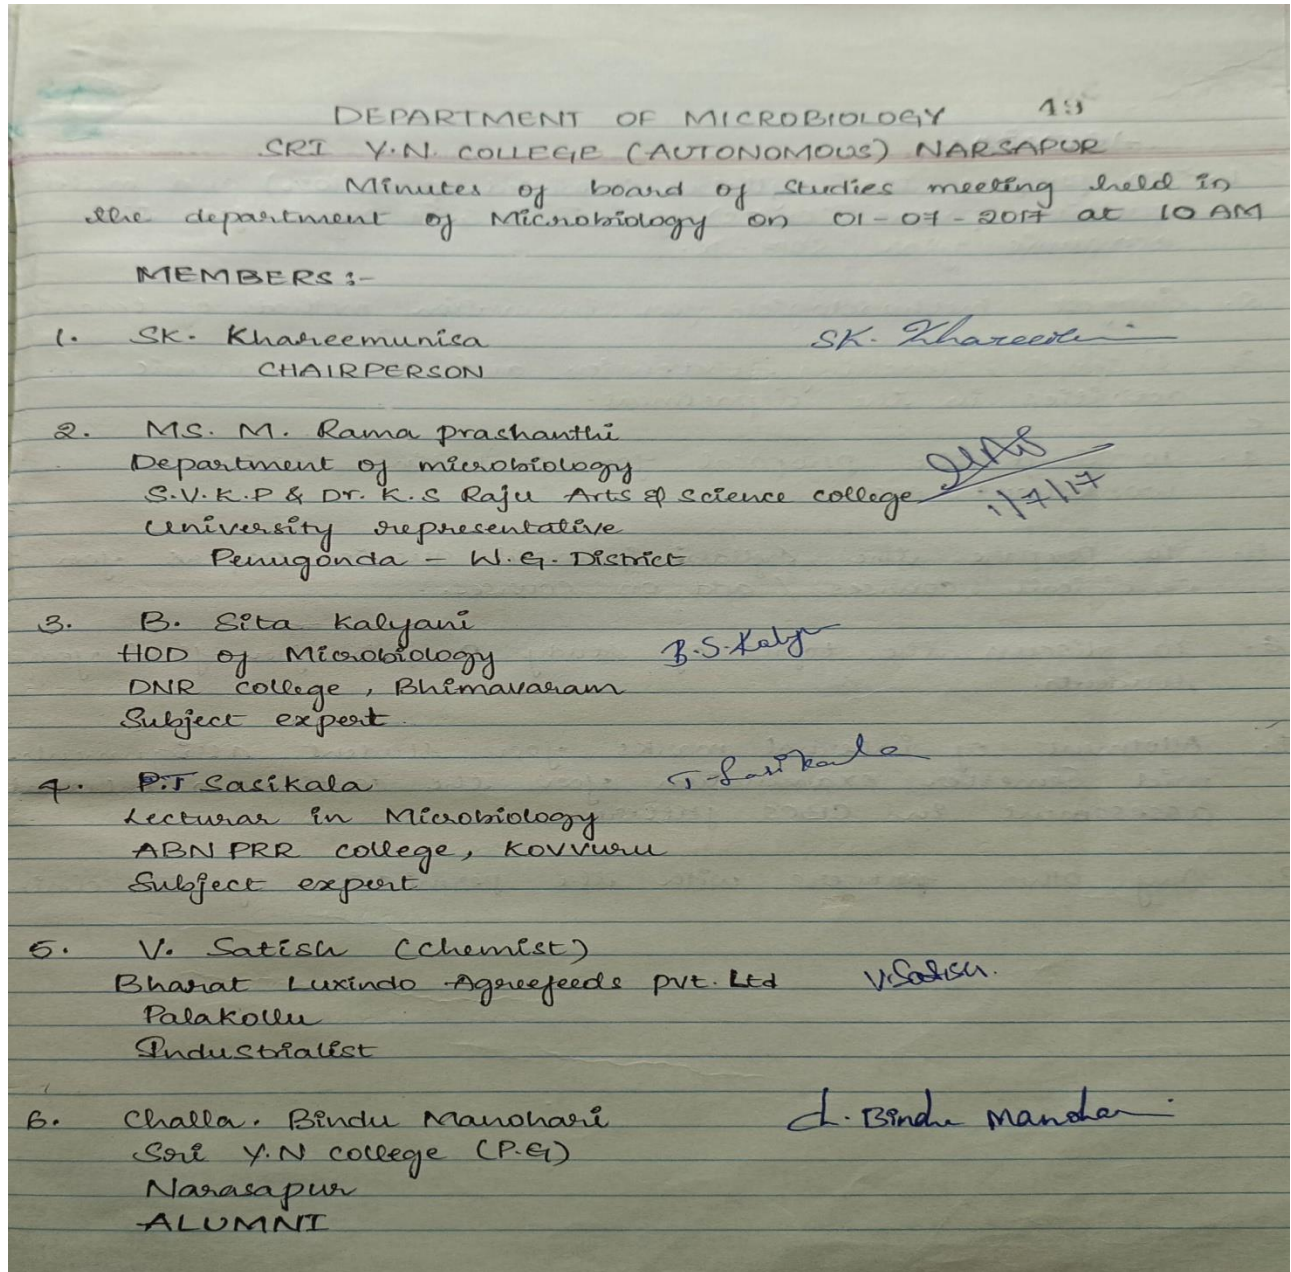 DEPARTMENT OF MICROBIOLOGY 49
SRI Y.N. COLLEGE (AUTONOMOUS) NARSAPUR
Minutes of board of Studies meeting held in
the department of Microbiology on 01-07-2017 at 10 AM
MEMBERS :-
1. SK. Khareemunisa SK. Khareem
CHAIRPERSON
2. MS. M. Rama prashanthi
Department of microbiology
S.V.K.P & Dr. K.S Raju Arts & science college
1/7/17
University representative
Penugonda - W.G. District
3. B. Sita Kalyani
HOD of Microbiology B.S.Kalyn
DNR college, Bhimavaram
Subject expert.
4. P.T Sasikala T. Sasikala
Lecturar in Microbiology
ABN PRR college, Kovvuru
Subject expert
5. V. Satish (chemist)
Bharat Luxindo Agreefeeds pvt. Ltd V.Satish.
Palakollu
Industrialist
6. Challa. Bindu Manohari ch. Bindu Manohari
Sri Y.N college (P.G)
Narasapur
ALUMNI